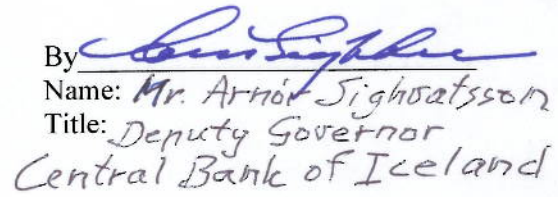 By
Name: Mr. Arnór Sighvatsson
Title: Deputy Governor
Central Bank of Iceland